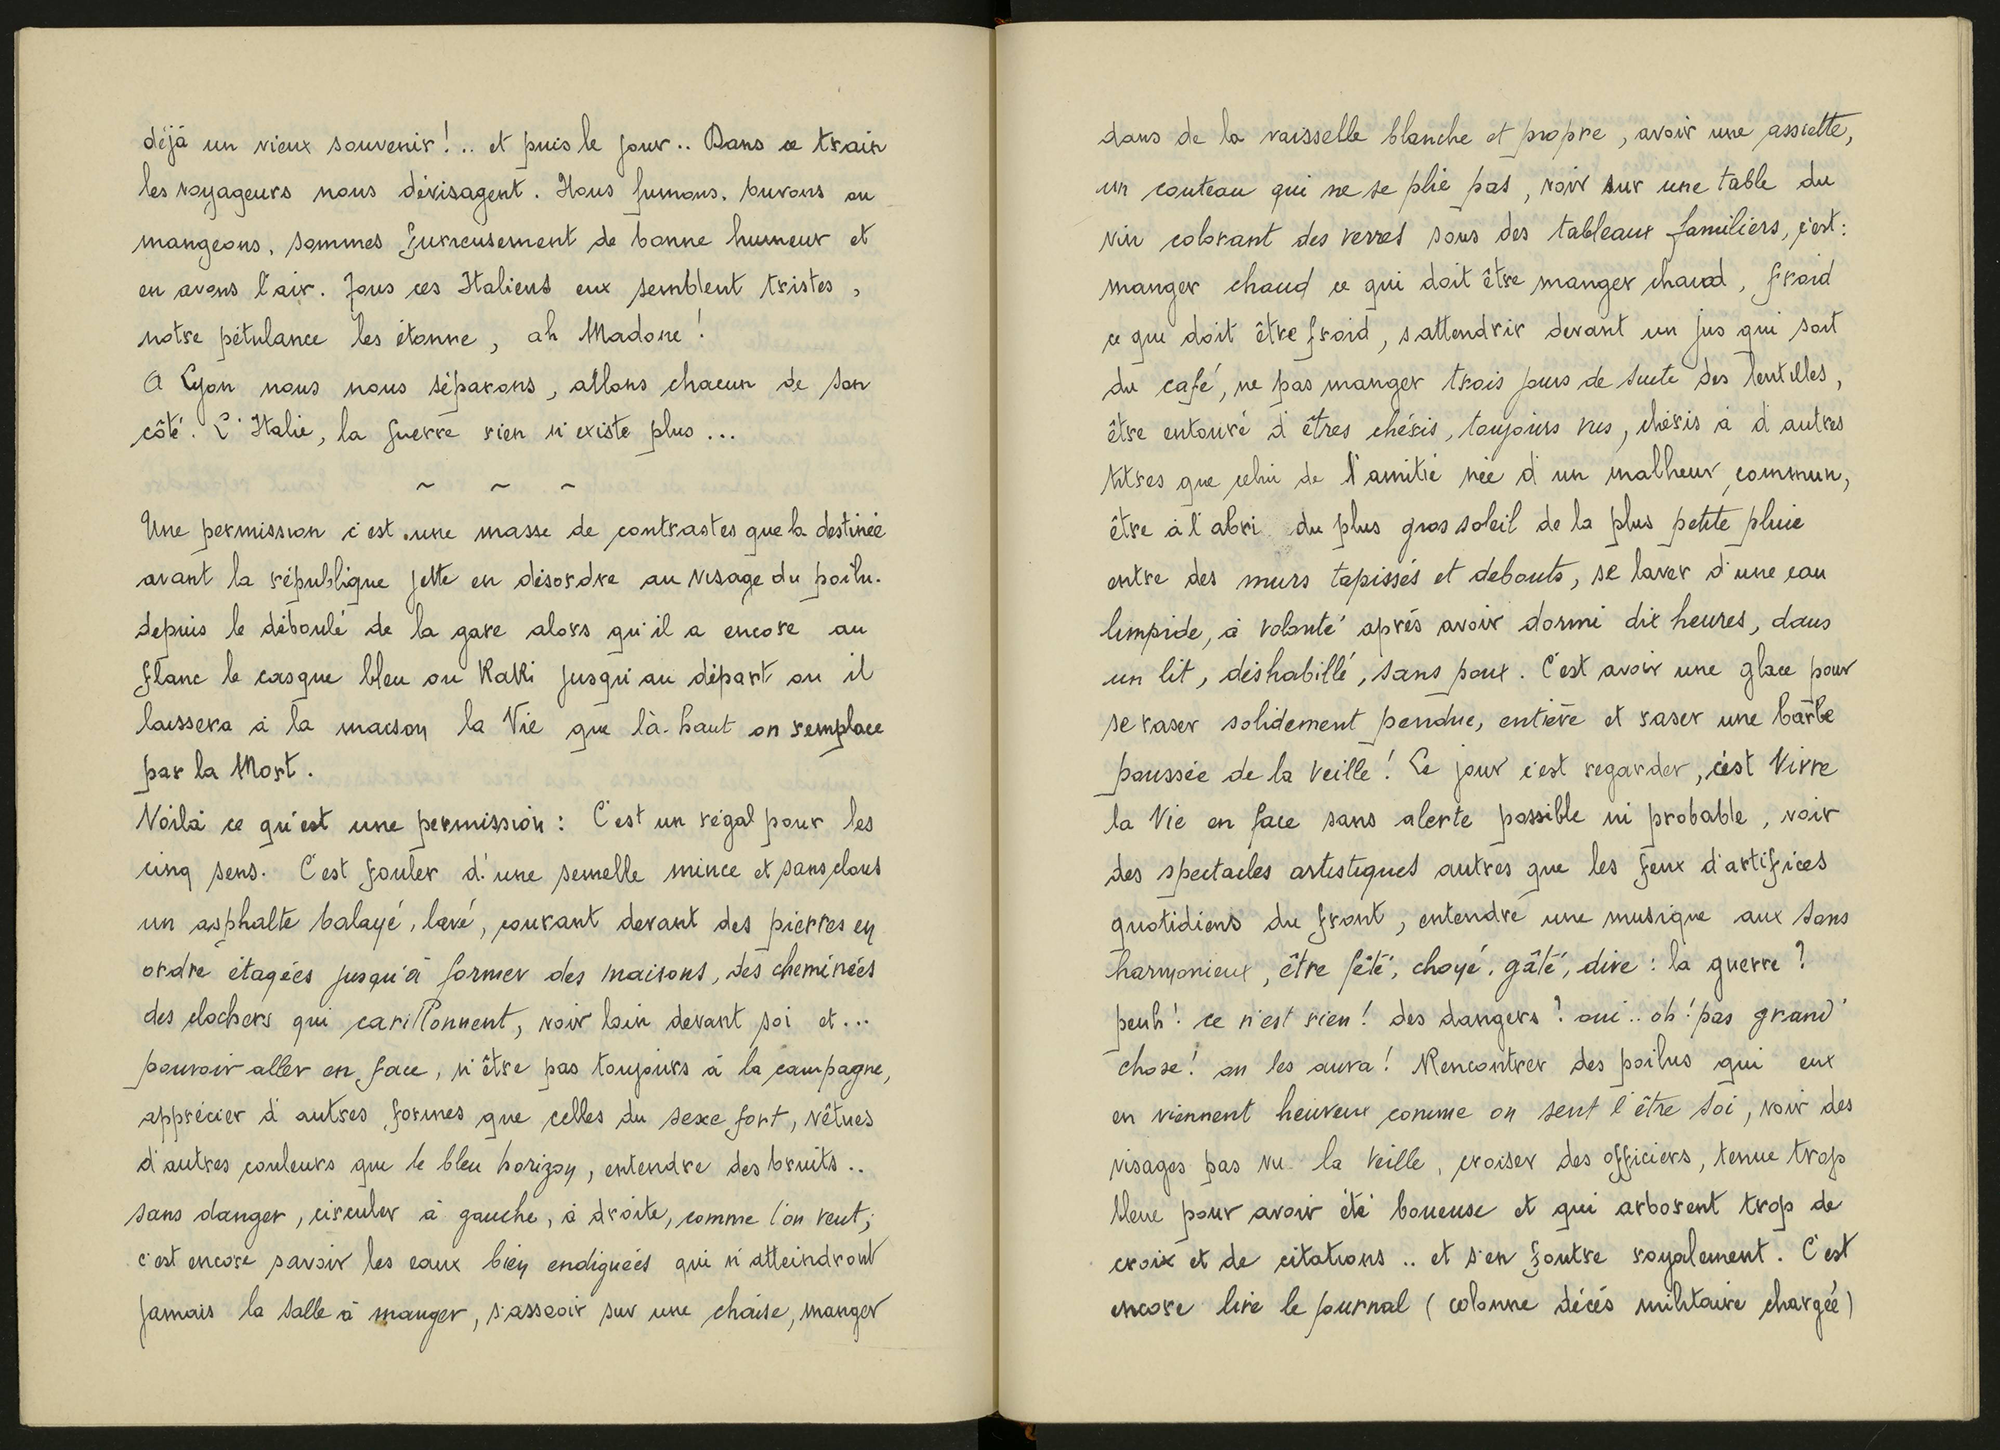 déjà un vieux souvenir!.. et puis le jour.. Dans ce train
les voyageurs nous dévisagent. Nous fumons, buvons ou
mangeons, sommes furieusement de bonne humeur et
en avons l'air. Tous ces Italiens eux semblent tristes,
notre pétulance les étonne, ah Madone!
A Lyon nous nous séparons, allons chacun de son
côté. L'Italie, la guerre rien n'existe plus...
~ ~ ~
Une permission c'est une masse de contrastes que la destinée
avant la république jette en désordre au visage du poilu.
depuis le déboulé de la gare alors qu'il a encore au
flanc le casque bleu ou KaKi jusqu'au départ ou il
laissera à la maison la Vie que là-haut on remplace
par la Mort.
Voilà ce qu'est une permission: C'est un régal pour les
cinq sens. C'est fouler d'une semelle mince et sans clous
un asphalte balayé, lavé, courant devant des pierres en
ordre étagées jusqu'à former des maisons, des cheminées
des clochers qui carillonnent, voir loin devant soi et...
pouvoir aller en face, n'être pas toujours à la campagne,
apprécier d'autres formes que celles du sexe fort, vêtues
d'autres couleurs que le bleu horizon, entendre des bruits..
sans danger, circuler à gauche, à droite, comme l'on veut;
c'est encore savoir les eaux bien endiguées qui n'atteindront
jamais la salle à manger, s'asseoir sur une chaise, manger
dans de la vaisselle blanche et propre, avoir une assiette,
un couteau qui ne se plie pas, voir sur une table du
vin colorant des verres sous des tableaux familiers, c'est:
manger chaud ce qui doit être manger chaud, froid
ce qui doit être froid, s'attendrir devant un jus qui soit
du café, ne pas manger trois jours de suite des lentilles,
être entouré d'êtres chéris, toujours vus, chéris à d'autres
titres que celui de l'amitié née d'un malheur commun,
être à l'abri du plus gros soleil de la plus petite pluie
entre des murs tapissés et debouts, se laver d'une eau
limpide, à volonté après avoir dormi dix heures, dans
un lit, déshabillé, sans poux. C'est avoir une glace pour
se raser solidement pendue, entière et raser une barbe
poussée de la veille! Le jour c'est regarder, c'est Vivre
la Vie en face sans alerte possible ni probable, voir
des spectacles artistiques autres que les feux d'artifices
quotidiens du front, entendre une musique aux sons
harmonieux, être fêté, choyé, gâté, dire: la guerre?
peuh! ce n'est rien! des dangers? oui.. oh! pas grand'
chose! on les aura! Rencontrer des poilus qui eux
en viennent heureux comme on sent l'être soi, voir des
visages pas vu la veille, croiser des officiers, tenue trop
bleue pour avoir été boueuse et qui arborent trop de
croix et de citations.. et s'en foutre royalement. C'est
encore lire le journal (colonne décés militaire chargée)